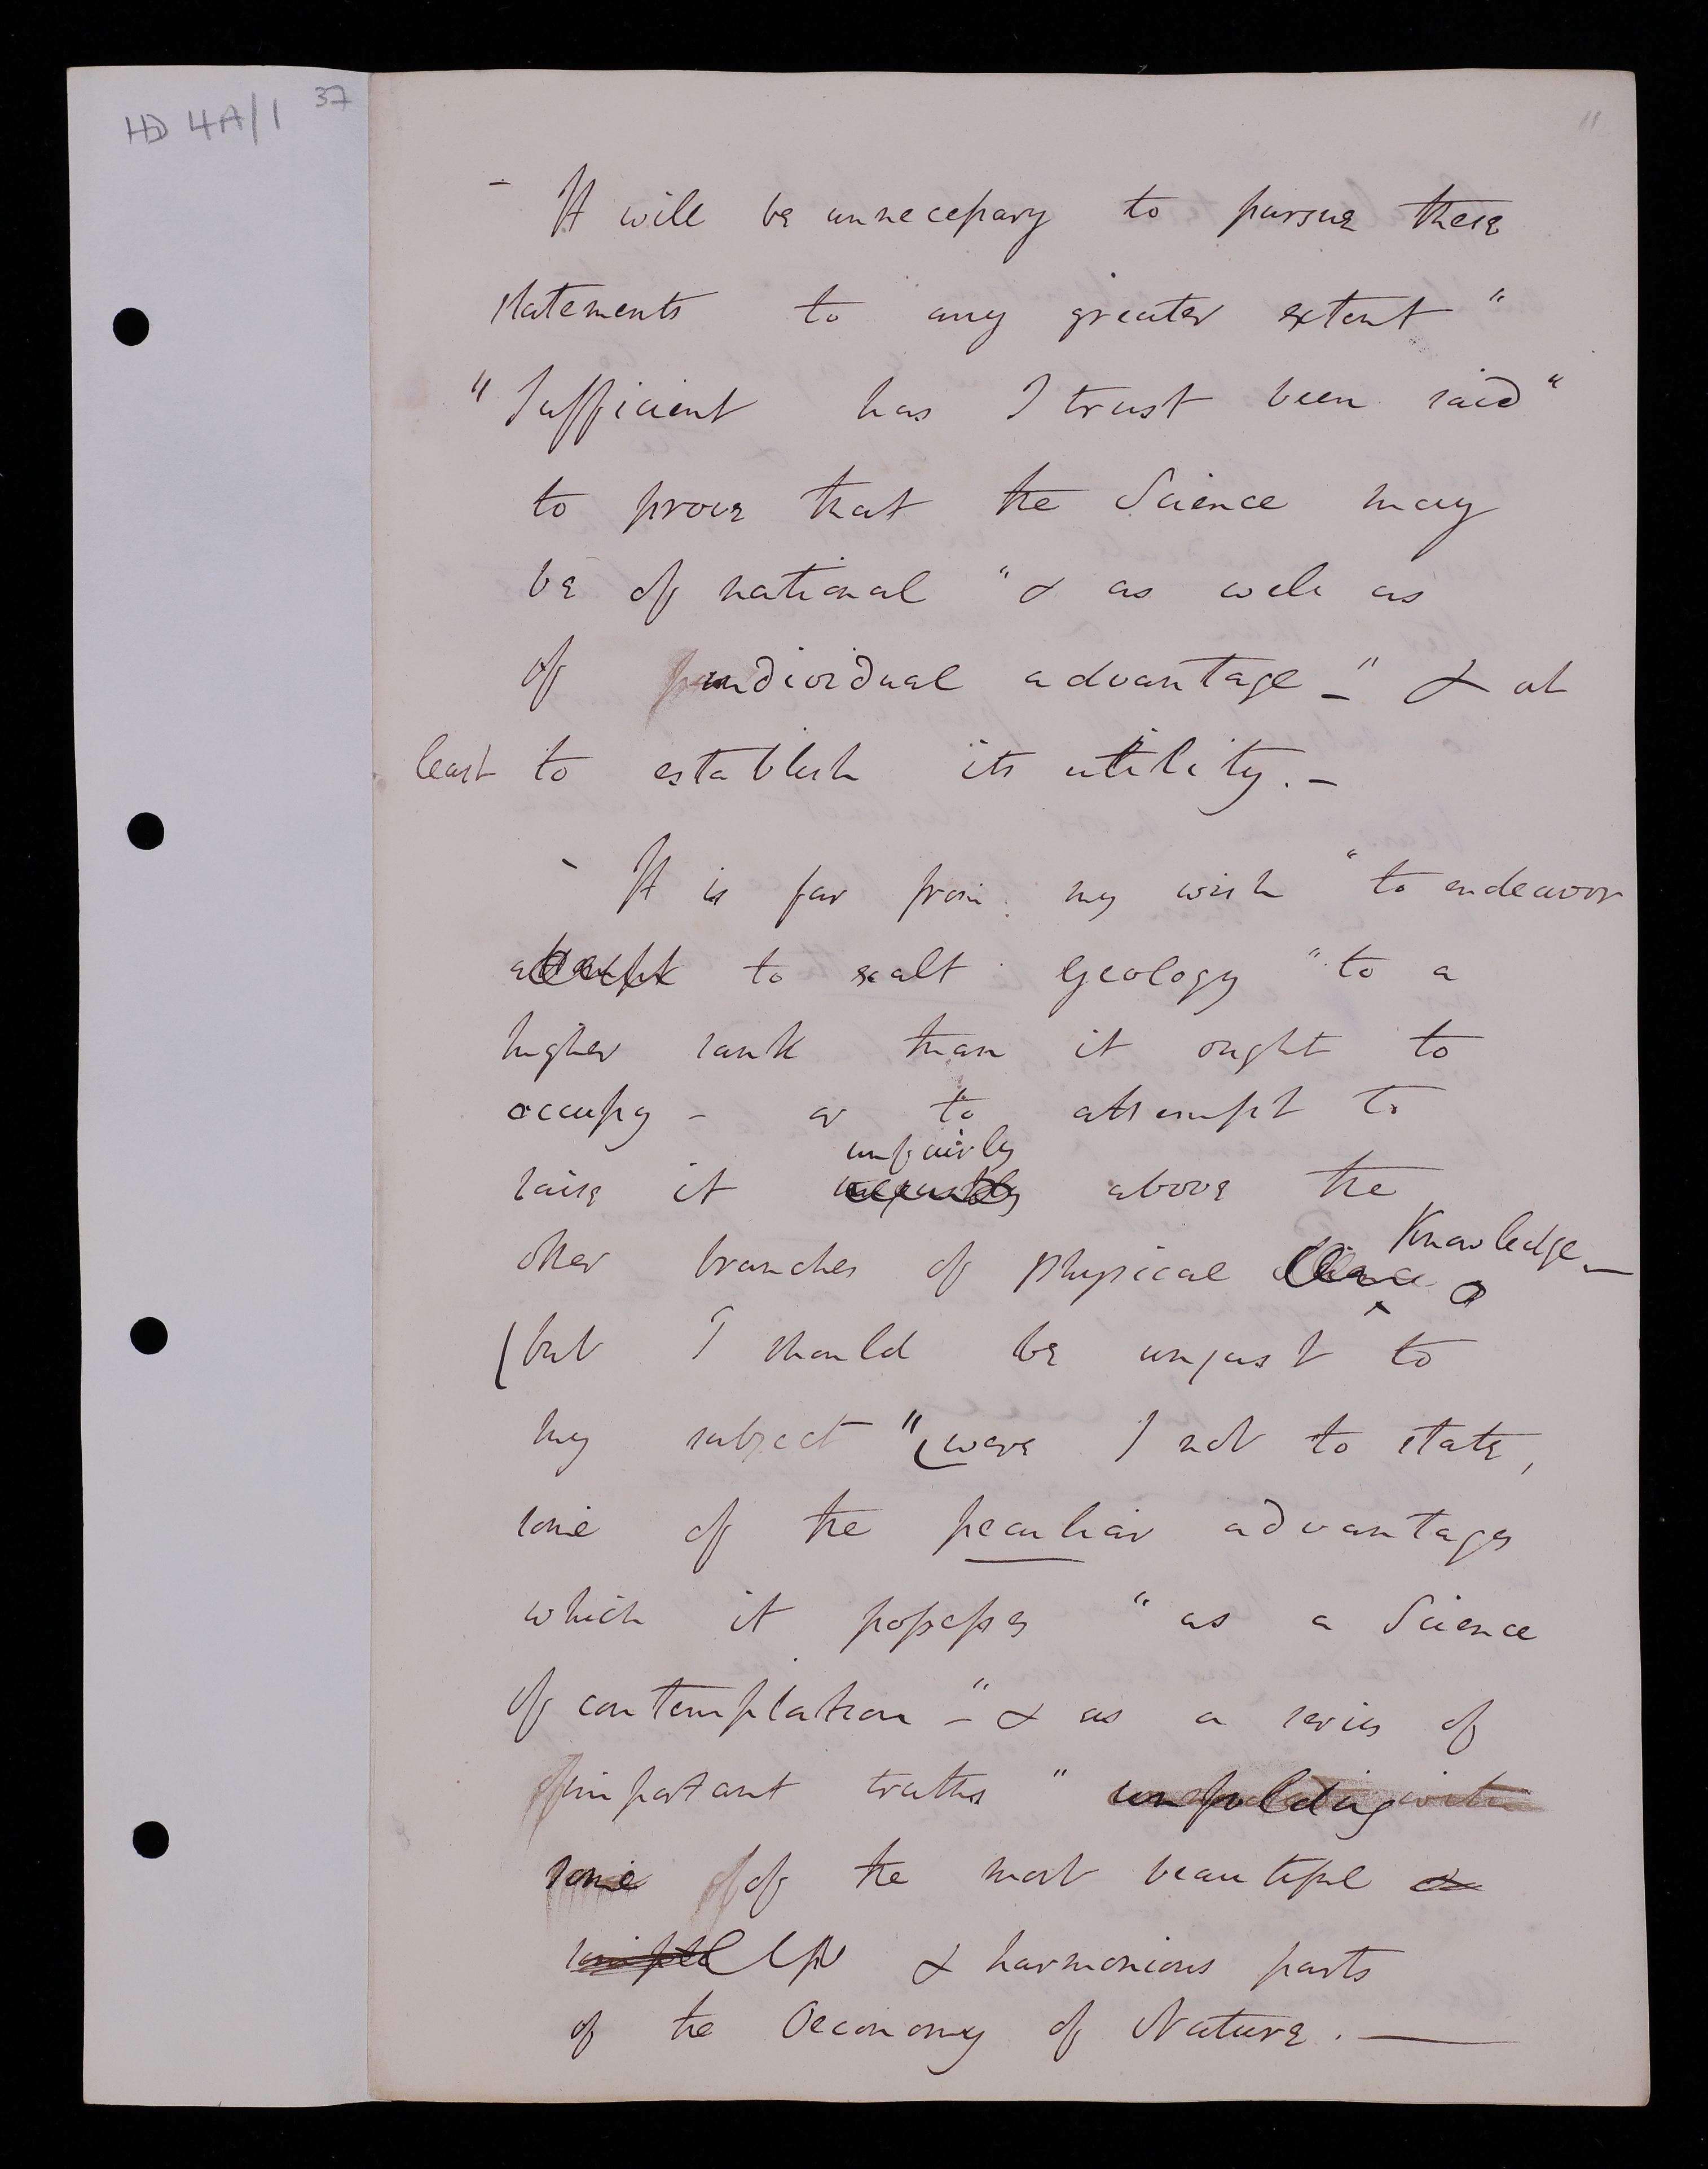 HD 4A/1 37
11
- It will be unnecessary to pursue these
statements to any greater extent "
" Sufficient has I trust been said "
to prove that the Science may
be of national " & as well as
of individual advantage - " & at
least to establish its utility. -
- It is far from my wish " to endeavor
attempt to exalt Geology " to a
higher rank than it ought to
occupy - or to attempt to
unfairly
raise it above the
Knowledge -
other branches of physical science
(but I should be unjust to
my subject " (were I not to state,
some of the peculiar advantages
which it possesses " as a Science
of contemplation - " & as a series of
important truths " unfolding with
some of of the most beautiful &
simple & harmonious parts
of the Oeconomy of Nature. —